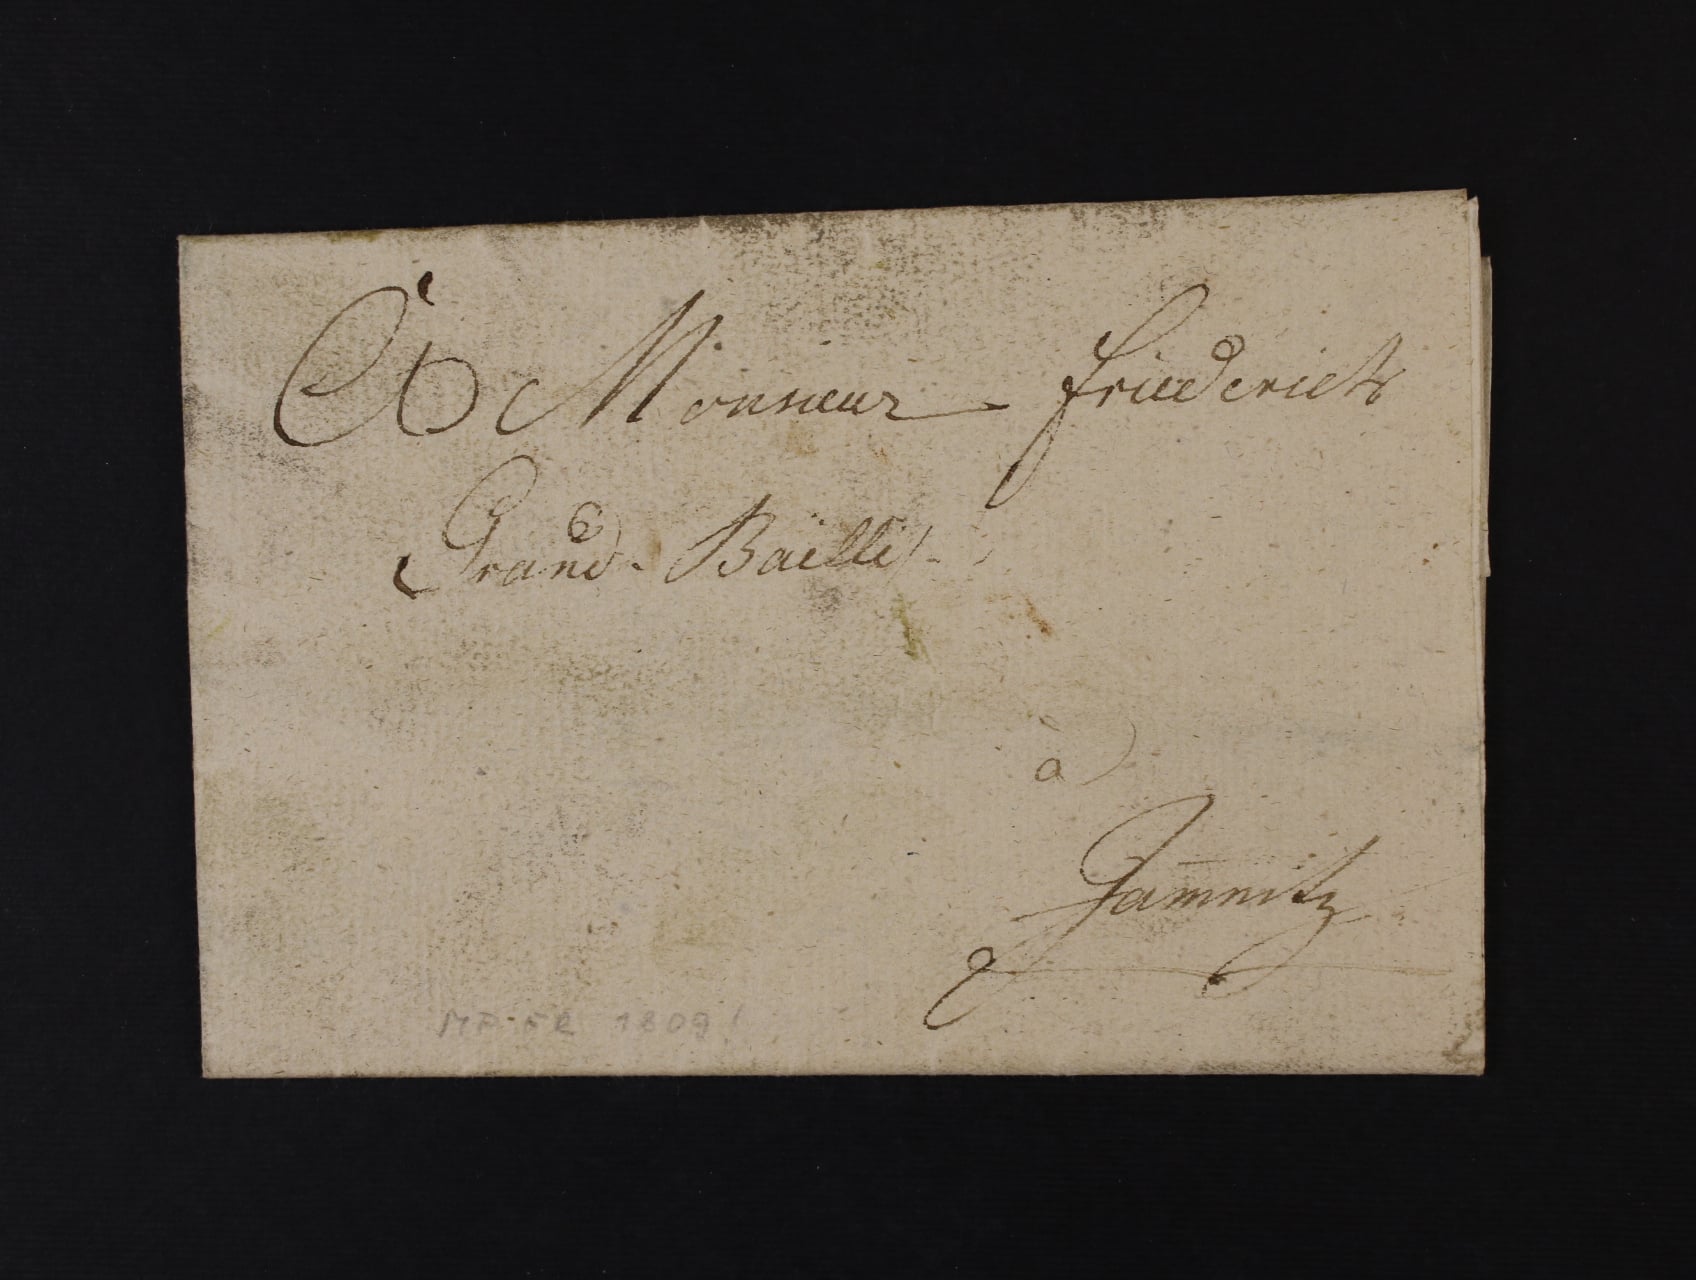 À Monsieur Friederich
Grand-Bailli
à
Jamnitz
MP-FR 1809!